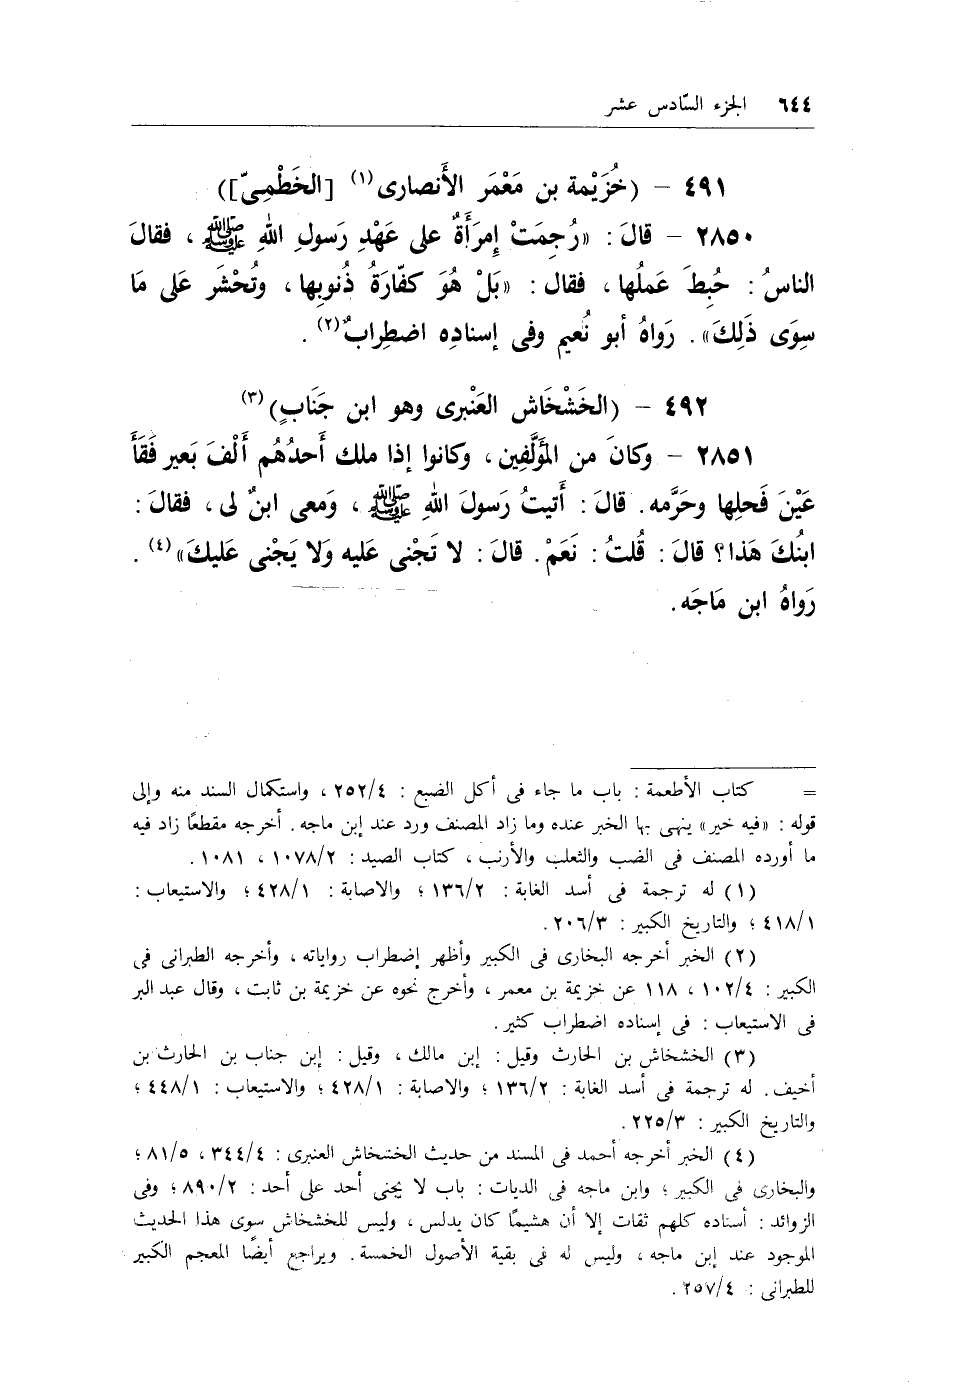 ٦٤٤ الجزء السّادس عشر
٤٩١ – (خُزَيْمة بن مَعْمَر الأَنصارى(١) [الخَطْمِىّ])
٢٨٥٠ – قالَ: «رُجِمَتْ إِمرَأَةٌ على عَهْدِ رَسولِ اللهِ ﷺ، فقالَ
الناسُ: حُبِطَ عَملُها، فقال: «بَلْ هُوَ كفّارَةُ ذُنوبِها، وتُحْشَر عَلى مَا
سِوَى ذَلِكَ». رَواهُ أبو نُعيم وفى إسنادِه اضطِرابٌ(٢).
٤٩٢ – (الخَشْخَاش العَنْبرى وهو ابن جَنَابٍ)(٣)
٢٨٥١ – وكانَ من المؤَلَّفِين، وكانوا إذا ملك أَحدُهُم أَلْفَ بَعير فَقَأَ
عَيْنَ فَحلِها وحَرَّمه. قالَ: أَتيتُ رَسولَ اللهِ ﷺ، وَمعى ابنٌ لى، فقالَ:
ابنُكَ هَذا؟ قالَ: قُلتُ: نَعَمْ. قالَ: لا تَجْنى عَليه وَلا يَجْنى عَليكَ»(٤).
رَواهُ ابن مَاجَه.
= كتاب الأطعمة: باب ما جاء فى أكل الضبع: ٢٥٢/٤، واستكمال السند منه وإلى
قوله: «فيه خير» ينهى بها الخبر عنده وما زاد المصنف ورد عند إبن ماجه. أخرجه مقطعًا زاد فيه
ما أورده المصنف فى الضب والثعلب والأرنب، كتاب الصيد: ١٠٧٨/٢، ١٠٨١.
(١) له ترجمة فى أسد الغابة: ١٣٦/٢؛ والاصابة: ٤٢٨/١؛ والاستيعاب:
٤١٨/١؛ والتاريخ الكبير: ٢٠٦/٣.
(٢) الخبر أخرجه البخارى فى الكبير وأظهر إضطراب رواياته، وأخرجه الطبرانى فى
الكبير: ١٠٢/٤، ١١٨ عن خزيمة بن معمر، وأخرج نحوه عن خزيمة بن ثابت، وقال عبد البر
فى الاستيعاب: فى إسناده اضطراب كثير.
(٣) الخشخاش بن الحارث وقيل: إبن مالك، وقيل: إبن جناب بن الحارث بن
أخيف. له ترجمة فى أسد الغابة: ١٣٦/٢؛ والاصابة: ٤٢٨/١؛ والاستيعاب: ٤٤٨/١؛
والتاريخ الكبير: ٢٢٥/٣.
(٤) الخبر أخرجه أحمد فى المسند من حديث الخشخاش العنبرى: ٣٤٤/٤، ٨١/٥؛
والبخارى فى الكبير؛ وابن ماجه فى الديات: باب لا يجنى أحد على أحد: ٨٩٠/٢؛ وفى
الزوائد: أسناده كلهم ثقات إلا أن هشيمًا كان يدلس، وليس للخشخاش سوى هذا الحديث
الموجود عند إبن ماجه، وليس له فى بقية الأصول الخمسة. ويراجع أيضًا المعجم الكبير
للطبرانى: ٢٥٧/٤.